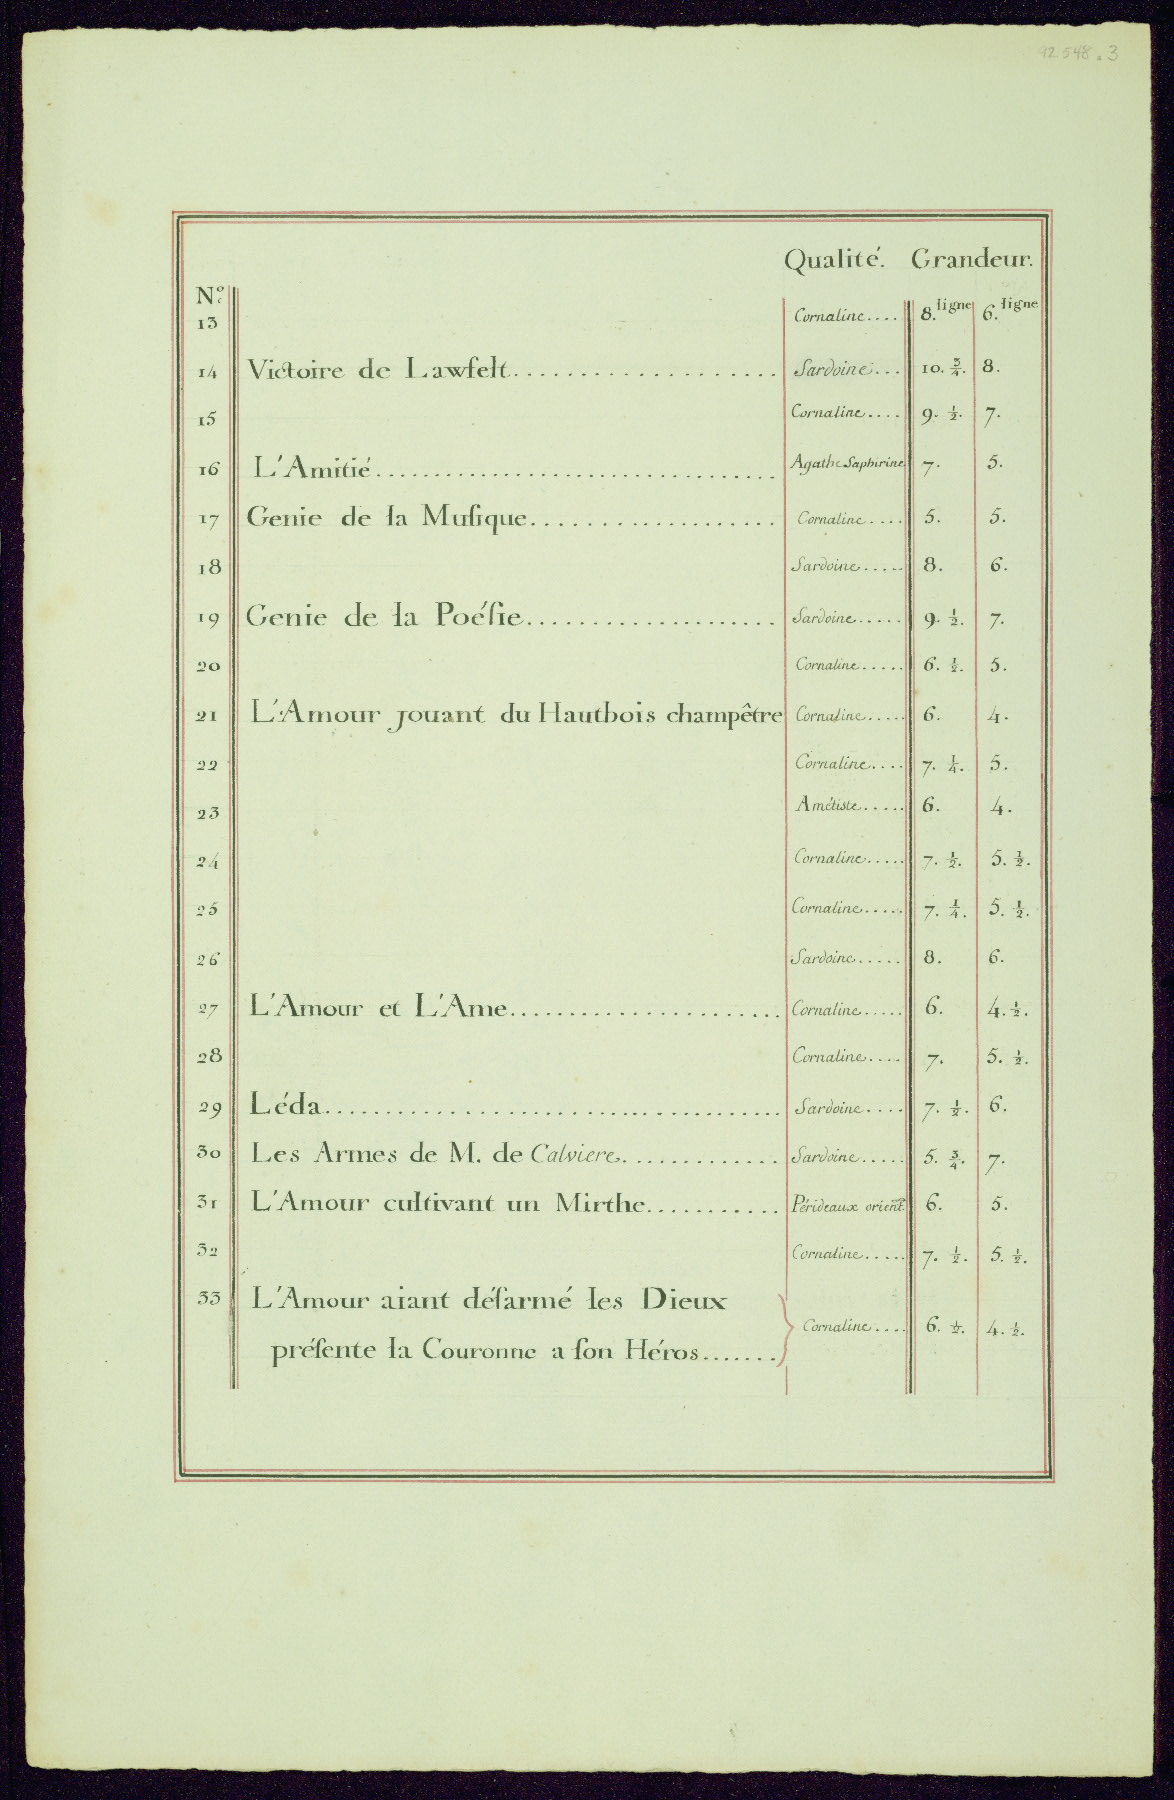 92 548.3
Qualité. Grandeur.
Nº
13 Cornaline.... 8. ligne 6. ligne
14 Victoire de Lawfelt.................... Sardoine... 10. 3/4. 8.
15 Cornaline.... 9. 1/2. 7.
16 L'Amitié.................................. Agathe Saphirine 7. 5.
17 Genie de la Muſique................... Cornaline.... 5. 5.
18 Sardoine..... 8. 6.
19 Genie de la Poéſie.................... Sardoine..... 9. 1/2. 7.
20 Cornaline..... 6. 1/2. 5.
21 L'Amour jouant du Hautbois champêtre Cornaline..... 6. 4.
22 Cornaline.... 7. 1/4. 5.
23 Amétiste..... 6. 4.
24 Cornaline..... 7. 1/2. 5. 1/2.
25 Cornaline..... 7. 1/4. 5. 1/2.
26 Sardoine..... 8. 6.
27 L'Amour et L'Ame....................... Cornaline..... 6. 4. 1/2.
28 Cornaline.... 7. 5. 1/2.
29 Léda....................................... Sardoine.... 7. 1/2. 6.
30 Les Armes de M. de Calviere............. Sardoine..... 5. 3/4. 7.
31 L'Amour cultivant un Mirthe........... Périd​eaux orient. 6. 5.
32 Cornaline..... 7. 1/2. 5. 1/2.
33 L'Amour aiant déſarmé les Dieux
préſente la Couronne a ſon Héros....... Cornaline.... 6. 1/2. 4. 1/2.